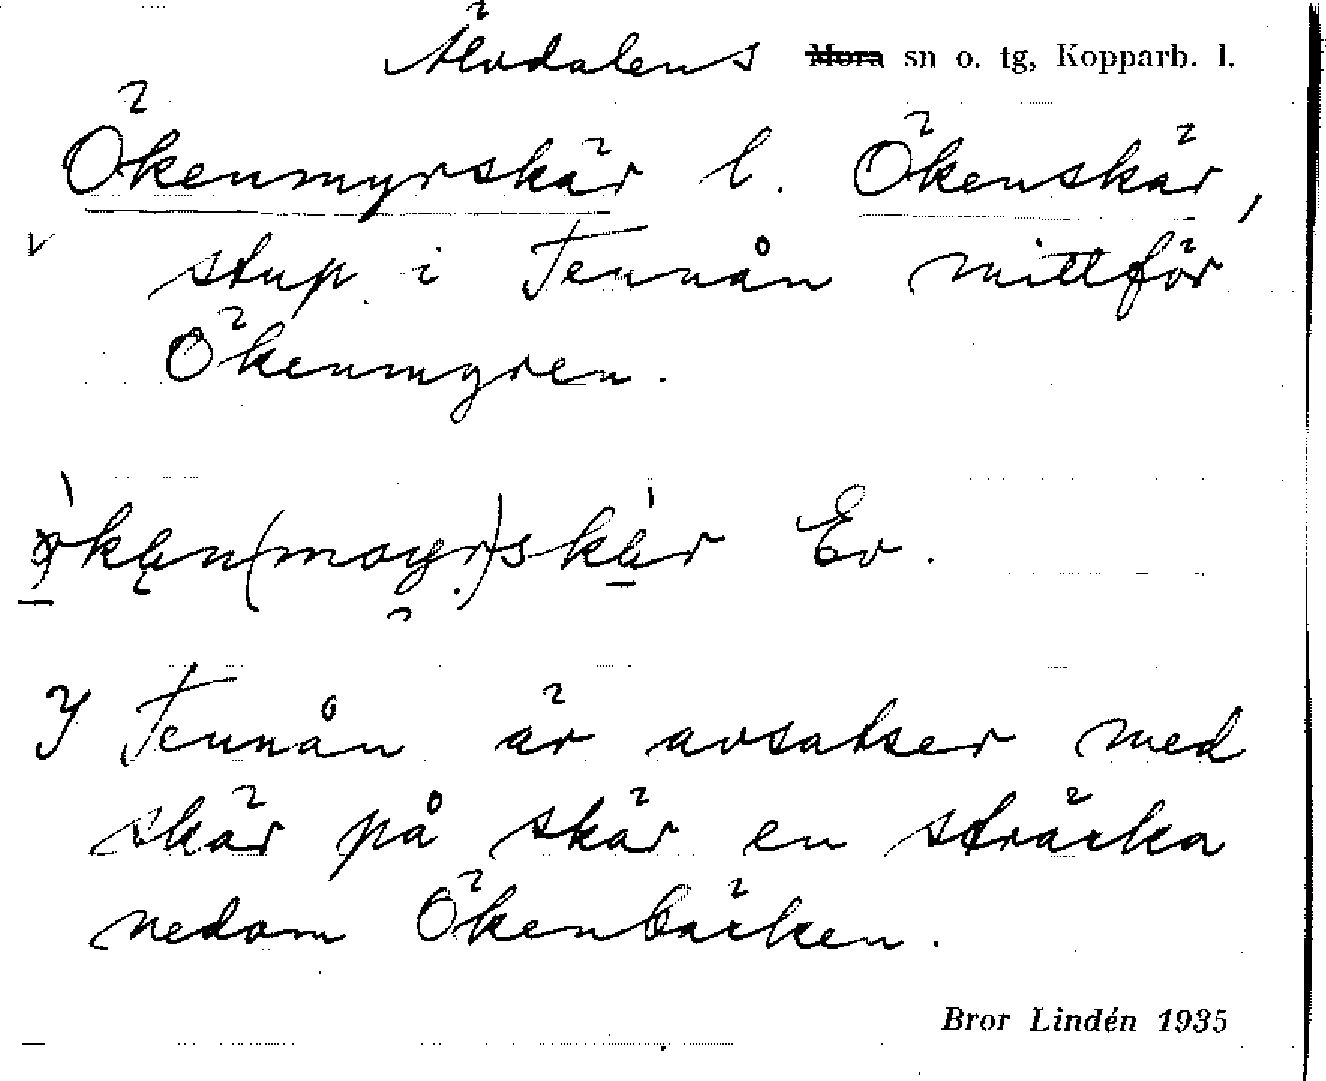 Älvdalens Mora sn o. tg, Kopparb. l.
Ökenmyrskär l. Ökenskär,
v stup i Tennån mittför
Ökenmyren.
Ev.
I Tennån är avsatser med
skär på skär en sträcka
nedom Ökenbäcken.
Bror Lindén 1935